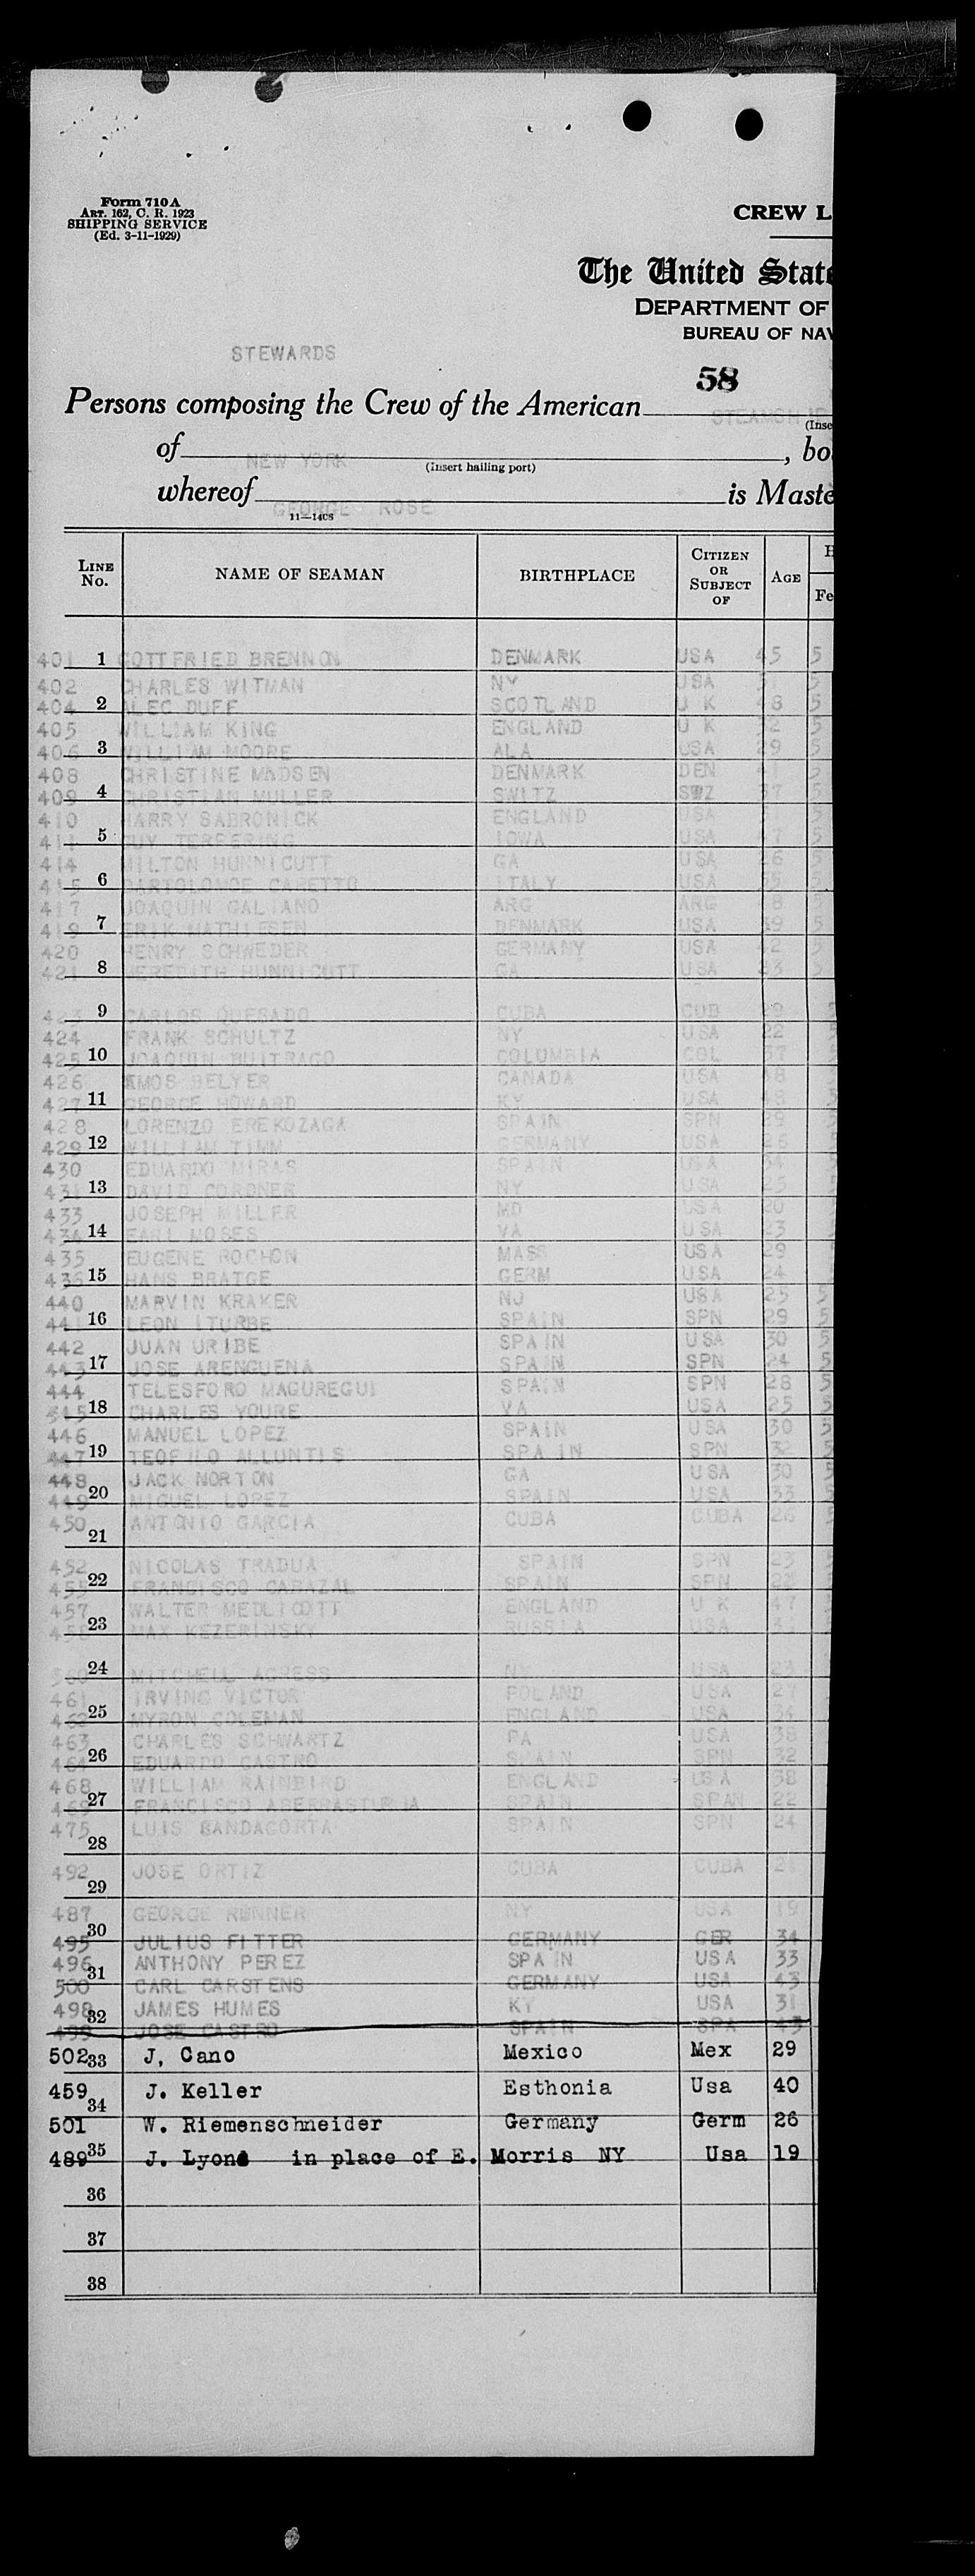 Form 710 A
ART. 162, C. R. 1923
SHIPPING SERVICE
(Ed. 3-11-1929)
CREW L
The United State
DEPARTMENT OF
BUREAU OF NAV
STEWARDS
58
Persons composing the Crew of the American
STEAMSHIP
(Inse
of NEW YORK , bo
(Insert hailing port)
whereof GEORGE ROSE is Maste
11—1408
LINE No. NAME OF SEAMAN BIRTHPLACE CITIZEN OR SUBJECT OF AGE H
Fe
401 1 GOTTFRIED BRENNON DENMARK USA 45 5
402 CHARLES WITMAN NY USA 5
404 2 ALEC DUFF SCOTLAND U K 48 5
405 WILLIAM KING ENGLAND U K 32 5
406 3 WILLIAM MOORE ALA USA 29 5
408 CHRISTINE MADSEN DENMARK DEN 41 5
409 4 CHRISTIAN MULLER SWITZ SWZ 37 5
410 HARRY SABRONICK ENGLAND USA 5
411 5 GUY TERPERING IOWA USA 47 5
414 MILTON HUNNICUTT GA USA 26 5
415 6 BARTOLOMOE CARETTO ITALY USA 5
417 JOAQUIN GALIANO ARG ARG 5
419 7 ERIK MATHIESEN DENMARK USA 39 5
420 HENRY SCHWEDER GERMANY USA 42 5
421 8 MEREDITH HUNNICUTT GA USA 23 5
423 9 CARLOS QUESADO CUBA CUB 29 5
424 FRANK SCHULTZ NY USA 22 5
425 10 JOAQUIN BUITRAGO COLUMBIA COL 37 5
426 AMOS BELYER CANADA USA 5
427 11 GEORGE HOWARD KY USA 48 5
428 LORENZO EREKOZAGA SPAIN SPN 29 5
429 12 WILLIAM TIMM GERMANY USA 26 5
430 EDUARDO MIRAS SPAIN USA 34 5
431 13 DAVID CORDNER NY USA 25 5
433 JOSEPH MILLER MD USA 20
434 14 EARL MOSES VA USA 23
435 EUGENE ROCHON MASS USA 29
436 15 HANS BRATGE GERM USA 24
440 MARVIN KRAKER NJ USA 25 5
441 16 LEON ITURBE SPAIN SPN 29 5
442 JUAN URIBE SPAIN USA 30 5
443 17 JOSE ARENGUENA SPAIN SPN 24 5
444 TELESFORO MAGUREGUI SPAIN SPN 28 5
545 18 CHARLES YOURE VA USA 25 5
446 MANUEL LOPEZ SPAIN USA 30 5
447 19 TEOFILO ALLUNTIS SPAIN SPN 32 5
448 JACK NORTON GA USA 30 5
449 20 MIGUEL LOPEZ SPAIN USA 33 5
450 ANTONIO GARCIA CUBA CUBA 26 5
21
452 NICOLAS TRADUA SPAIN SPN 23
455 22 FRANCISCO CARAZAL SPAIN SPN
457 WALTER MEDLICOTT ENGLAND U K 47
458 23 MAX KEZERINSKY RUSSIA USA
560 24 MITCHELL AGRESS USA 23
461 IRVING VICTOR POLAND USA
462 25 MYRON COLEMAN ENGLAND USA 34
463 CHARLES SCHWARTZ PA USA 38
464 26 EDUARDO CASTRO SPAIN SPN 32
468 WILLIAM RAINBIRD ENGLAND USA 38
469 27 FRANCISCO ABERRASTURIA SPAIN SPAN 22
475 LUIS BANDACORTA SPAIN SPN 24
28
492 JOSE ORTIZ CUBA CUBA
29
487 GEORGE RENNER NY USA 19
30
495 JULIUS FITTER GERMANY GER 34
496 31 ANTHONY PEREZ SPAIN USA 33
500 CARL CARSTENS GERMANY USA 43
498 32 JAMES HUMES KY USA 31
499 JOSE CASTRO SPAIN SPA 43
502 33 J, Cano Mexico Mex 29
459 34 J. Keller Esthonia Usa 40
501 W. Riemenschneider Germany Germ 26
489 35 J. Lyons in place of E. Morris NY Usa 19
36
37
38